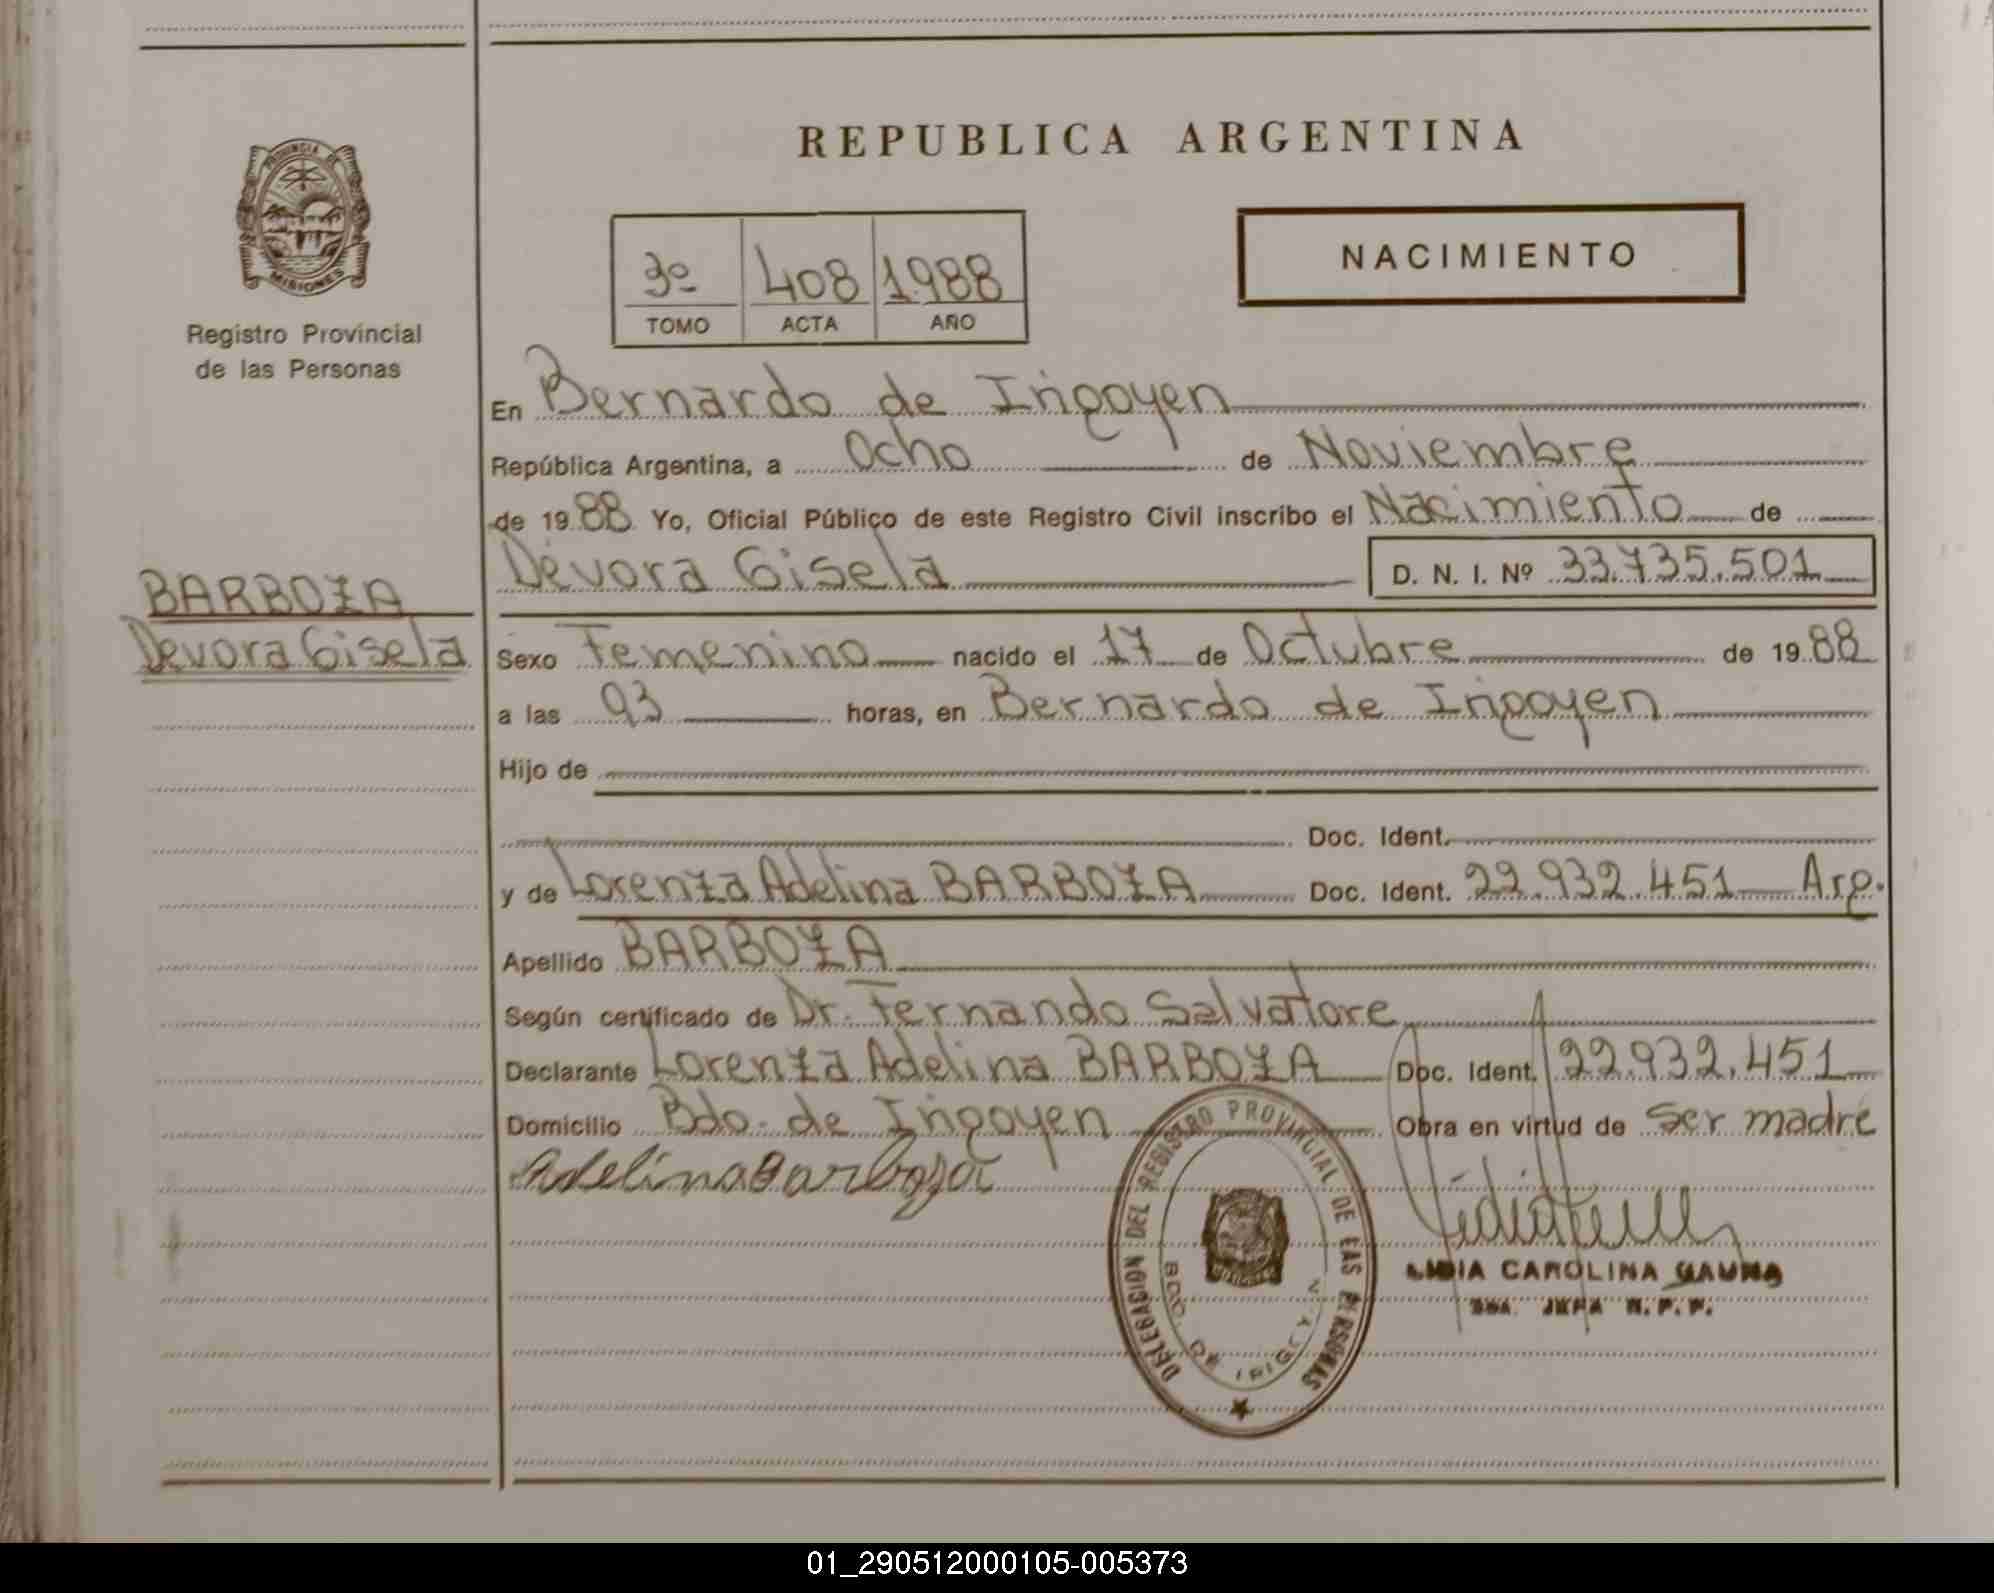 PROVINCIA DE
MISIONES
Registro Provincial
de las Personas
REPUBLICA ARGENTINA
3º 408 1988
TOMO ACTA AÑO
NACIMIENTO
En Bernardo de Irigoyen
República Argentina, a Ocho de Noviembre
de 1988 Yo, Oficial Público de este Registro Civil inscribo el Nacimiento de
Devora Gisela D. N. I. Nº 33.735.501
BARBOZA
Devora Gisela
Sexo Femenino nacido el 17 de Octubre de 1988
a las 03 horas, en Bernardo de Irigoyen
Hijo de
Doc. Ident.
y de Lorenza Adelina BARBOZA Doc. Ident. 22.932.451 Arg.
Apellido BARBOZA
Según certificado de Dr. Fernando Salvatore
Declarante Lorenza Adelina BARBOZA Doc. Ident. 22.932.451
Domicilio Bdo. de Irigoyen Obra en virtud de Ser madre
Adelina Barboza
DELEGACION DEL REGISTRO PROVINCIAL DE LAS PERSONAS
BDO. DE IRIGOYEN
LIDIA CAROLINA GAUNA
JEFA R. P. P.
01_290512000105-005373